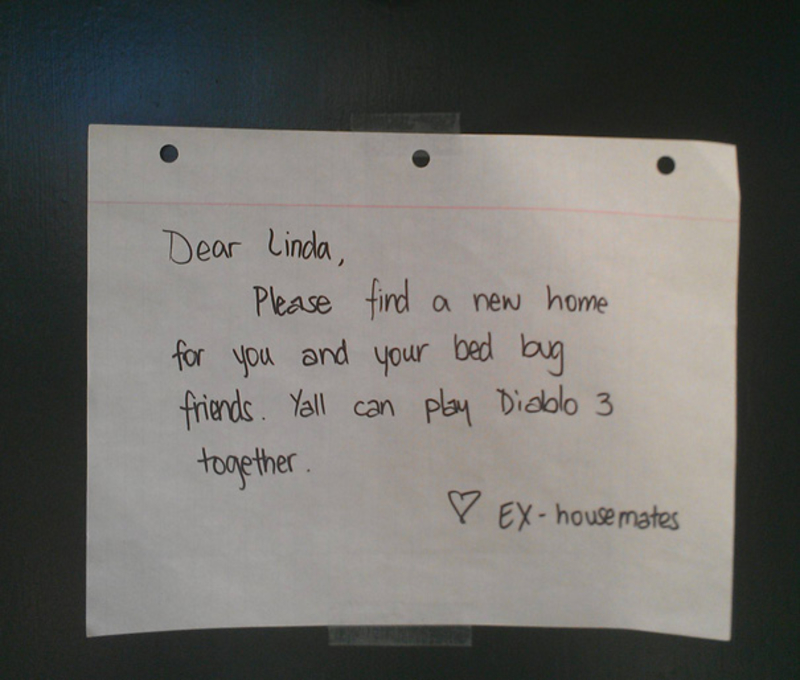 Dear Linda,
Please find a new home
for you and your bed bug
friends. Yall can play Diablo 3
together.
♡ EX-housemates